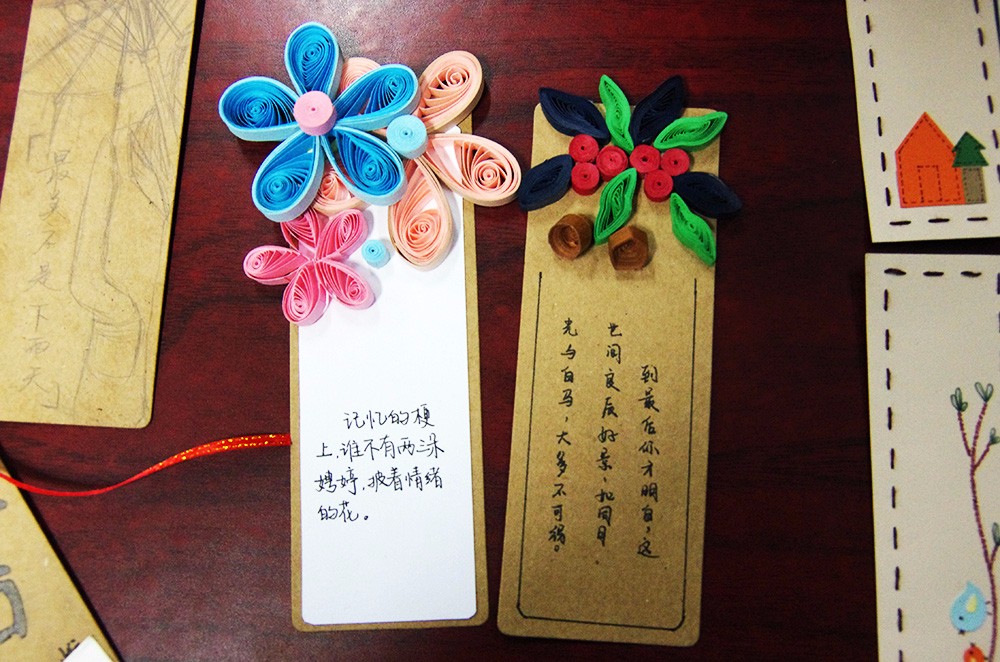 「最美不是下雨天」
记忆的梗
上,谁不有两三朵
娉婷,披着情绪
的花。
到最后你才明白,这
世间良辰好景,如同日
光与白马,大多不可得。